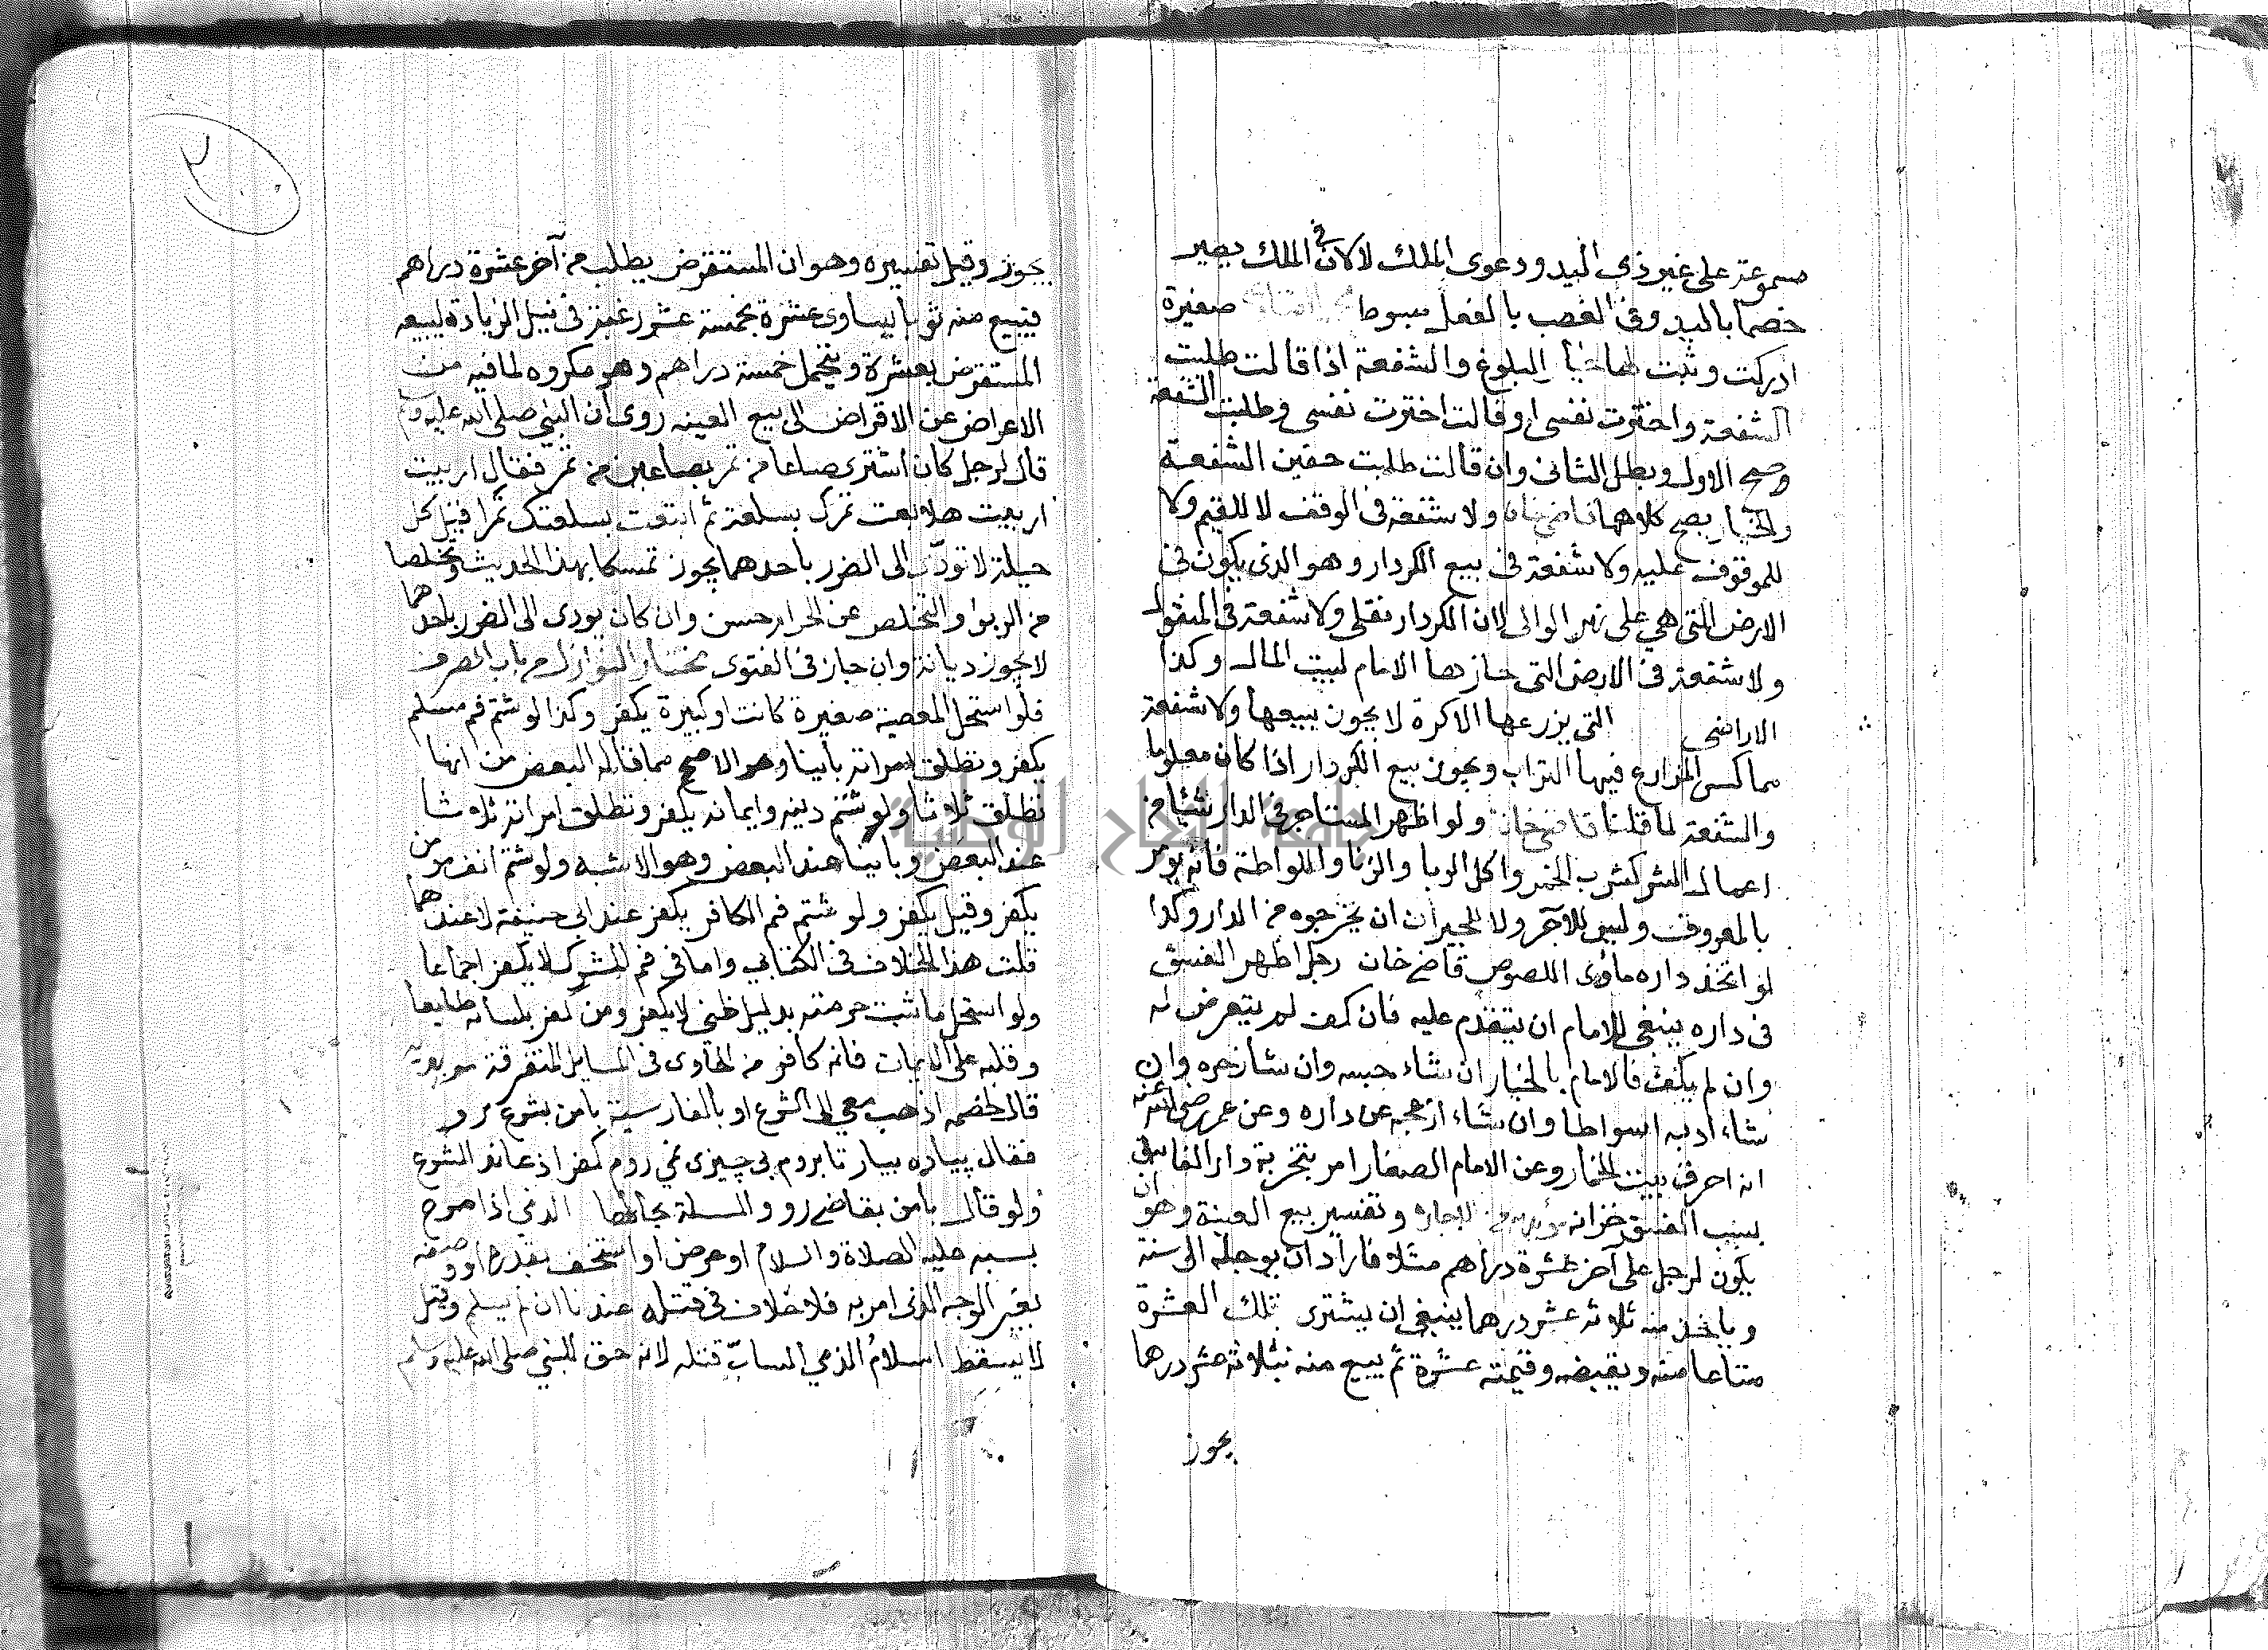 مسموعة على غير ذى اليد ودعوى الملك لا لان فى الملك يصير
خصما باليد وفى الغصب بالفعل مبسوط صغيرة
ادركت وثبت لها خيار البلوغ والشفعة اذا قالت طلبت
الشفعة واخترت نفسى او قالت اخترت نفسى وطلبت الشفعة
وصح الاول وبطل الثانى وان قالت طلبت حقين الشفعة
والخيار يصح كلاهما قاضى خان ولا شفعة فى الوقف لا للقيم ولا
للموقوف عليه ولا شفعة فى بيع الكردار وهو الذى يكون فى
الارض التى هى على نهر الوالى لان الكردار نقلى ولا شفعة فى المنقول
ولا شفعة فى الارض التى حازها الامام لبيت المال وكذا
الاراضى التى يزرعها الاكرة لا يجوز بيعها ولا شفعة
مما كسى المزارع فيها التراب ويجوز بيع الكردار اذا كان معلوما
والشفعة لما قلنا قاضى خان ولو اظهر المستاجر فى الدار شيئا من
اعمال الشر كشرب الخمر واكل الربا والزنا واللواطة فانه يومر
بالمعروف وليس للآجر ولا للجيران ان يخرجوه من الدار وكذا
لو اتخذ داره ماوى اللصوص قاضى خان رجل اظهر الفسق
فى داره ينبغى للامام ان يتقدم عليه فان كف لم يتعرض له
وان لم يكف فالامام بالخيار ان شاء حبسه وان شا زجره وان
شاء ادبه اسواطا وان شاء ازعجه عن داره وعن عمر رضى الله عنه
انه احرق بيت الخمار وعن الامام الصفار امر بتخريب دار الفاسق
بسبب الفسق خزانه وتفسير بيع العينة وهو ان
يكون لرجل على آخر عشرة دراهم مثلا فاراد ان يوجله الى سنة
وياخذ منه ثلاثه عشر درهما ينبغى ان يشترى بتلك العشرة
متاعا منه ويقبضه وقيمته عشرة ثم يبيع منه بثلاثه عشر درهما
يجوز
يجوز وقيل تفسيره وهو ان المستقرض يطلب من آخر عشرة دراهم
فيبيع منه ثوبا يساوى عشرة بخمسة عشر رغبة فى نيل الزيادة ليبيعه
المستقرض بعشرة ويتحمل خمسة دراهم وهو مكروه لما فيه من
الاعراض عن الاقراض الى بيع العينه روى ان النبى صلى الله عليه وسلم
قال لرجل كان اشترى صاعا من تمر بصاعين من تمر فقال اربيت
اربيت هلا بعت تمرك بسلعة ثم ابتعت بسلعتك تمرا قيل كل
حيلة لا تودى الى الضرر باحدهما يجوز تمسكا بهذا الحديث وتخلصا
من الربوا والتخلص عن الحرام حسن وان كان يودى الى الضرر باحدهما
لا يجوز ديانة وان جاز فى الفتوى مختار النوازل من باب الصرف
فلو استحل المعصية صغيرة كانت او كبيرة يكفر وكذا لو شتم فم مسلم
يكفر وتطلق امراته بائنا وهو الاصح مما قاله البعض من انها
تطلق ثلاثا ولو شتم دينه وايمانه يكفر وتطلق امراته ثلاثا
عند البعض وبائنا عند البعض وهو الاشبه ولو شتم انف مومن
يكفر وقيل يكفر ولو شتم فم الكافر يكفر عند ابى حنيفة لا عندهما
قلت هذا الخلاف فى الكتابي واما فى فم المشرك لا يكفر اجماعا
ولو استحل ما ثبت حرمته بدليل ظنى لا يكفر ومن كفر بلسانه طايعا
وقلبه على الايمان فانه كافر من الحاوى فى المسايل المتفرقة
قال لخصمه اذهب معي الى الشرع او بالفارسية بامن بشرع رو
فقال پياده بيار تا بروم بى چيزى نمي روم كفر اذ عاند الشرع
ولو قال بامن بقاضى رو والمسلة بحالها الذمي اذا صرح
بسبه عليه الصلاة والسلام او عرض او استخف بقدره او وصفه
بغير الوجه الذى امر به فلا خلاف فى قتله عندنا ان لم يسلم وقيل
لا يسقط اسلام الذمي الساب قتله لانه حق للنبي صلى الله عليه وسلم